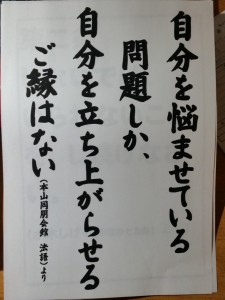 自分を悩ませている
問題しか、
自分を立ち上がらせる
ご縁はない(本山同朋会館 法語)より